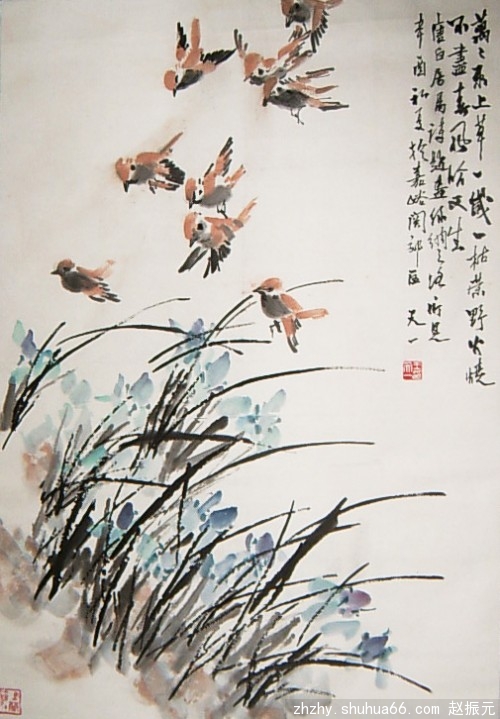 离〻原上草一歲一枯榮野火燒
不盡春風吹又生
唐白居易詩題畫絲綢之路所見
辛酉初夏於嘉峪關郊區 天一
zhzhy.shuhua66.com 赵振元